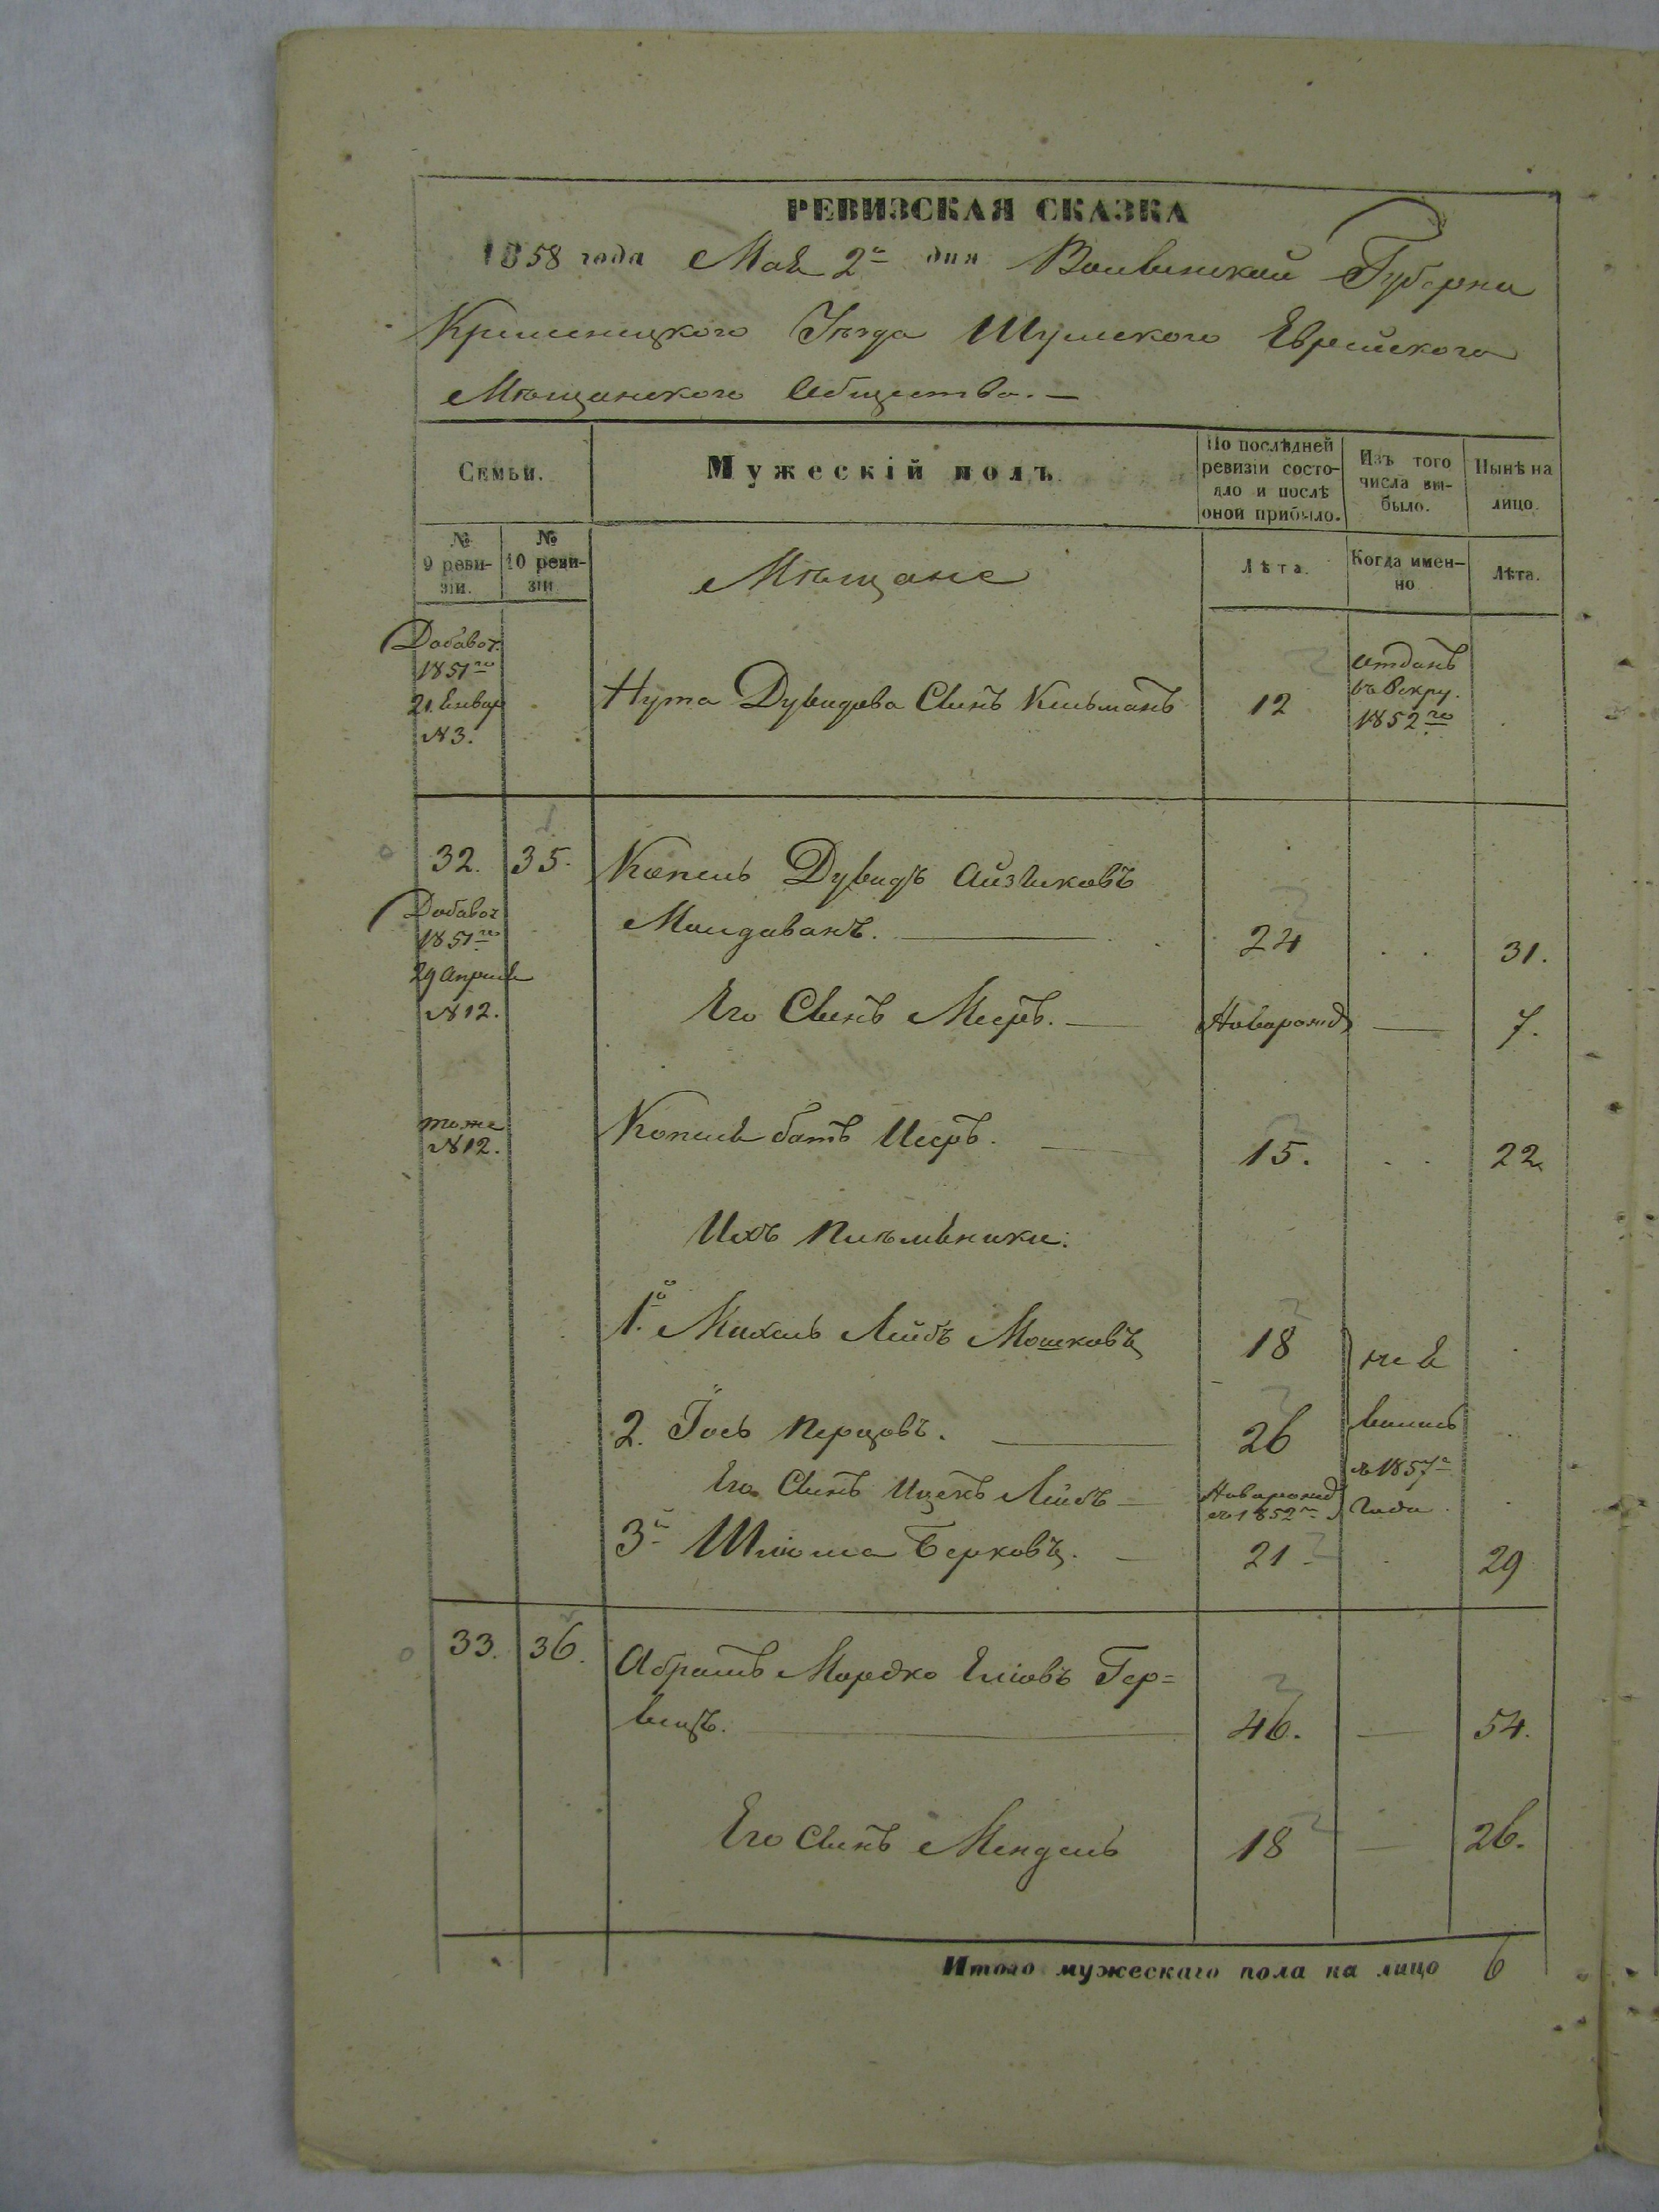 РЕВИЗСКАЯ СКАЗКА
1858 года Мая 2го дня Волынской Губернии
Кременецкого Уезда Шумского Еврейского
Мѣщанского Общества.—
Семьи.
Мужескій полъ
По послѣдней ревизіи состояло и послѣ оной прибыло.
Изъ того числа выбыло.
Нынѣ на лицо.
№ 9 ревизіи.
№ 10 ревизіи
Мѣщане
Лѣта.
Когда именно
Лѣта.
Добавоч. 1851го 21. Январ №3.
Нута Дувидова Сынъ 12 отданъ въ Рекру. 1852го
32. 35. Копель Дувидъ Айзиковъ
Молдаванъ. — 24 . . 31.
Добавоч 1851го 29 Апреля №12.
Его Сынъ Мееръ. — Новорожд — 7.
тоже №12.
Копеля братъ 15. . . 22
Ихъ племѣники:
1й Михель Лейбъ Мошковъ 18 не я
2. Іось Перцовъ. — 26 вились
Его Сынъ Ицекъ Лейбъ — Новорожд въ 1852го въ 1857го Года
3й Шліома Берковъ. — 21. . 29
33. 36. Абрамъ Мордко Еліовъ Гер=
вицъ. — 46. — 54.
Его Сынъ Мендель 18 — 26.
Итого мужескаго пола на лицо 6